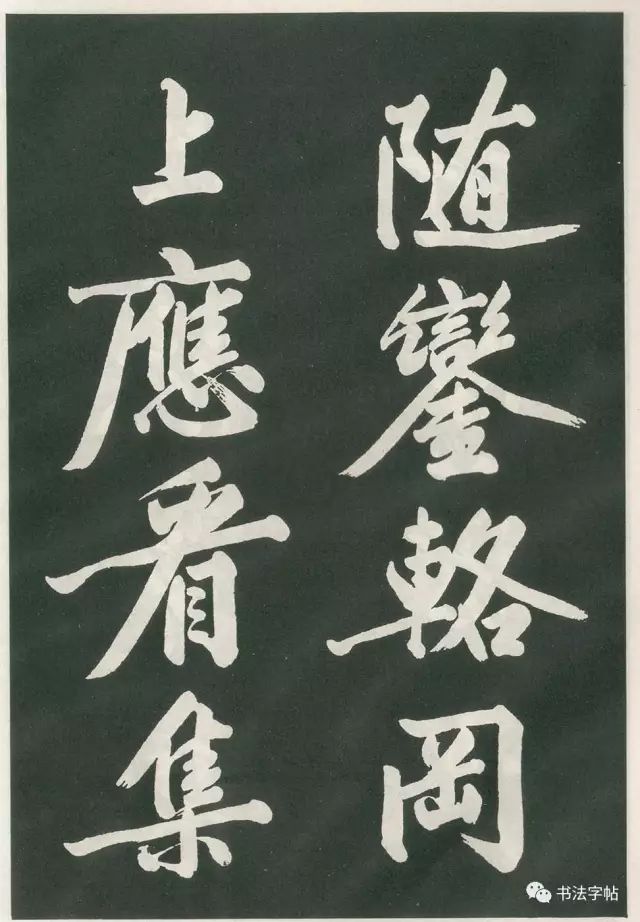 随鑾輅岡
上應看集
书法字帖